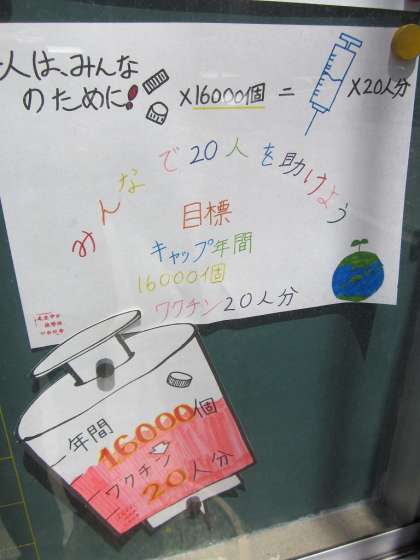 一人は、みんな
のために!
×16000個 = ×20人分
みんなで20人を助けよう
目標
キャップ年間
16000個
ワクチン20人分
一年間
16000個
ワクチン
20人分